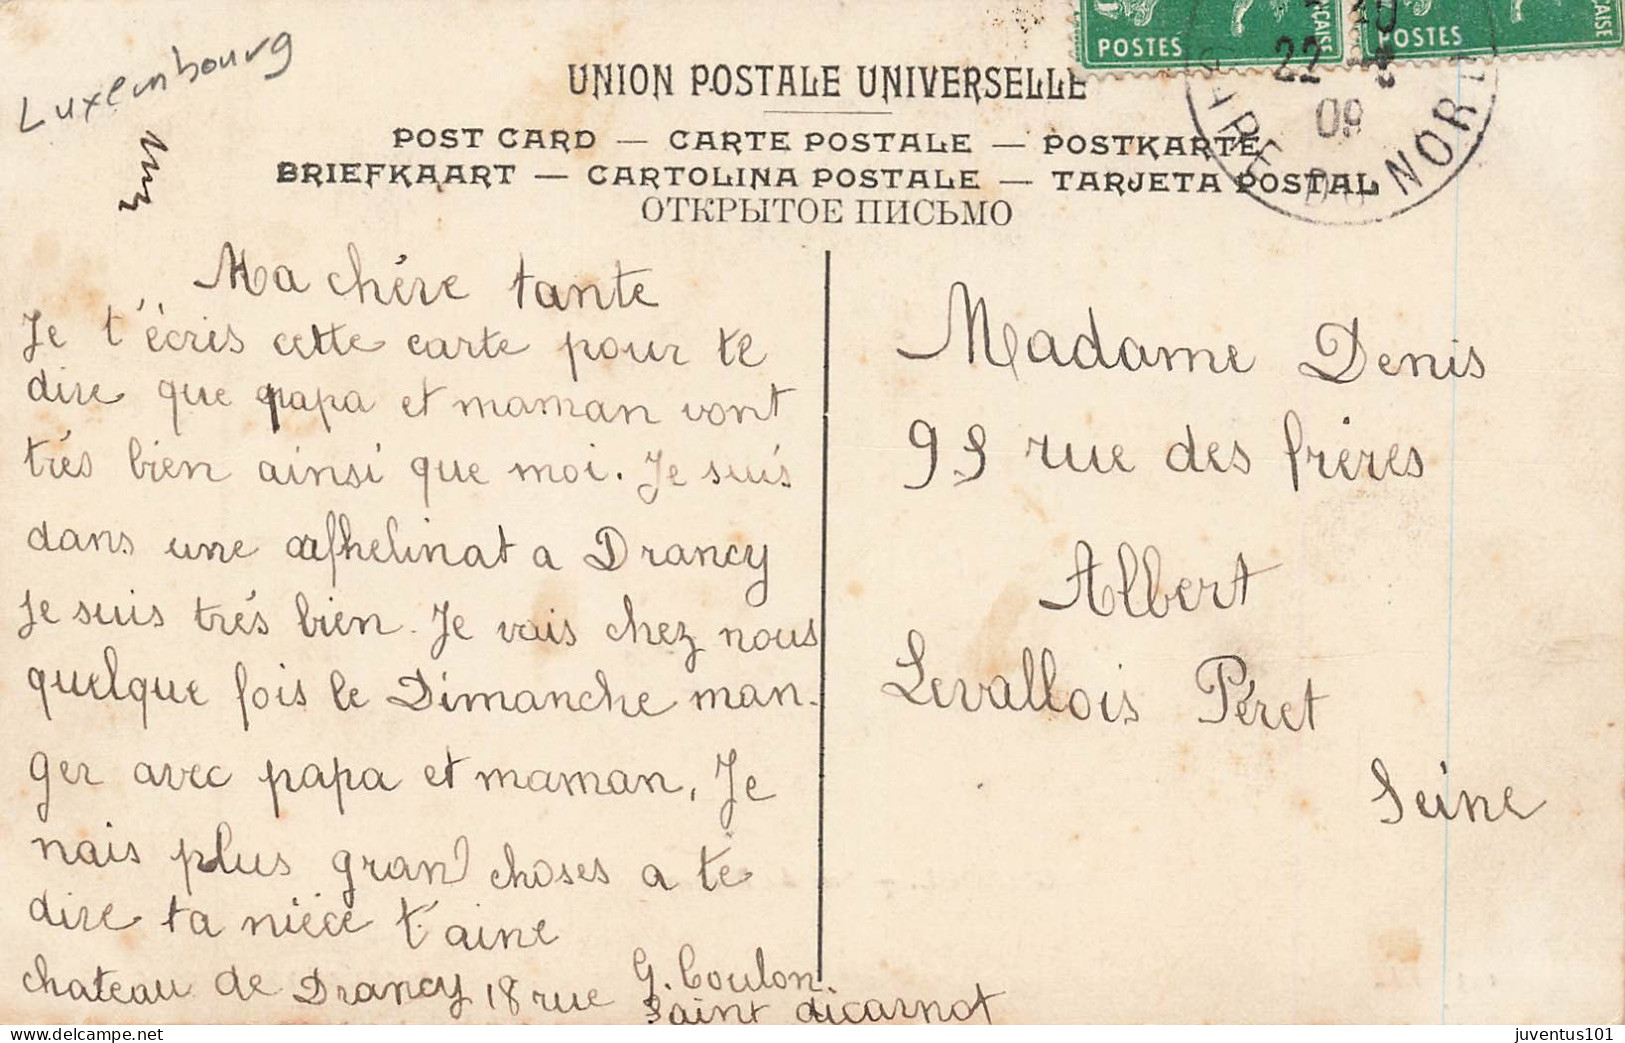 Luxembourg
POSTES
POSTES
22
09
GARE DU NORD
UNION POSTALE UNIVERSELLE
POST CARD — CARTE POSTALE — POSTKARTE
BRIEFKAART — CARTOLINA POSTALE — TARJETA POSTAL
ОТКРЫТОЕ ПИСЬМО
Ma chére tante
Je t'écris cette carte pour te
dire que papa et maman vont
trés bien ainsi que moi. Je suis
dans une orfhelinat a Drancy
Je suis trés bien. Je vais chez nous
quelque fois le Dimanche man-
ger avec papa et maman, Je
nais plus grand choses a te
dire ta niéce t'aine
G. Coulon
chateau de Drancy 18 rue
Saint dicarnot
Madame Denis
99 rue des fréres
Albert
Levallois Péret
Seine
juventus101